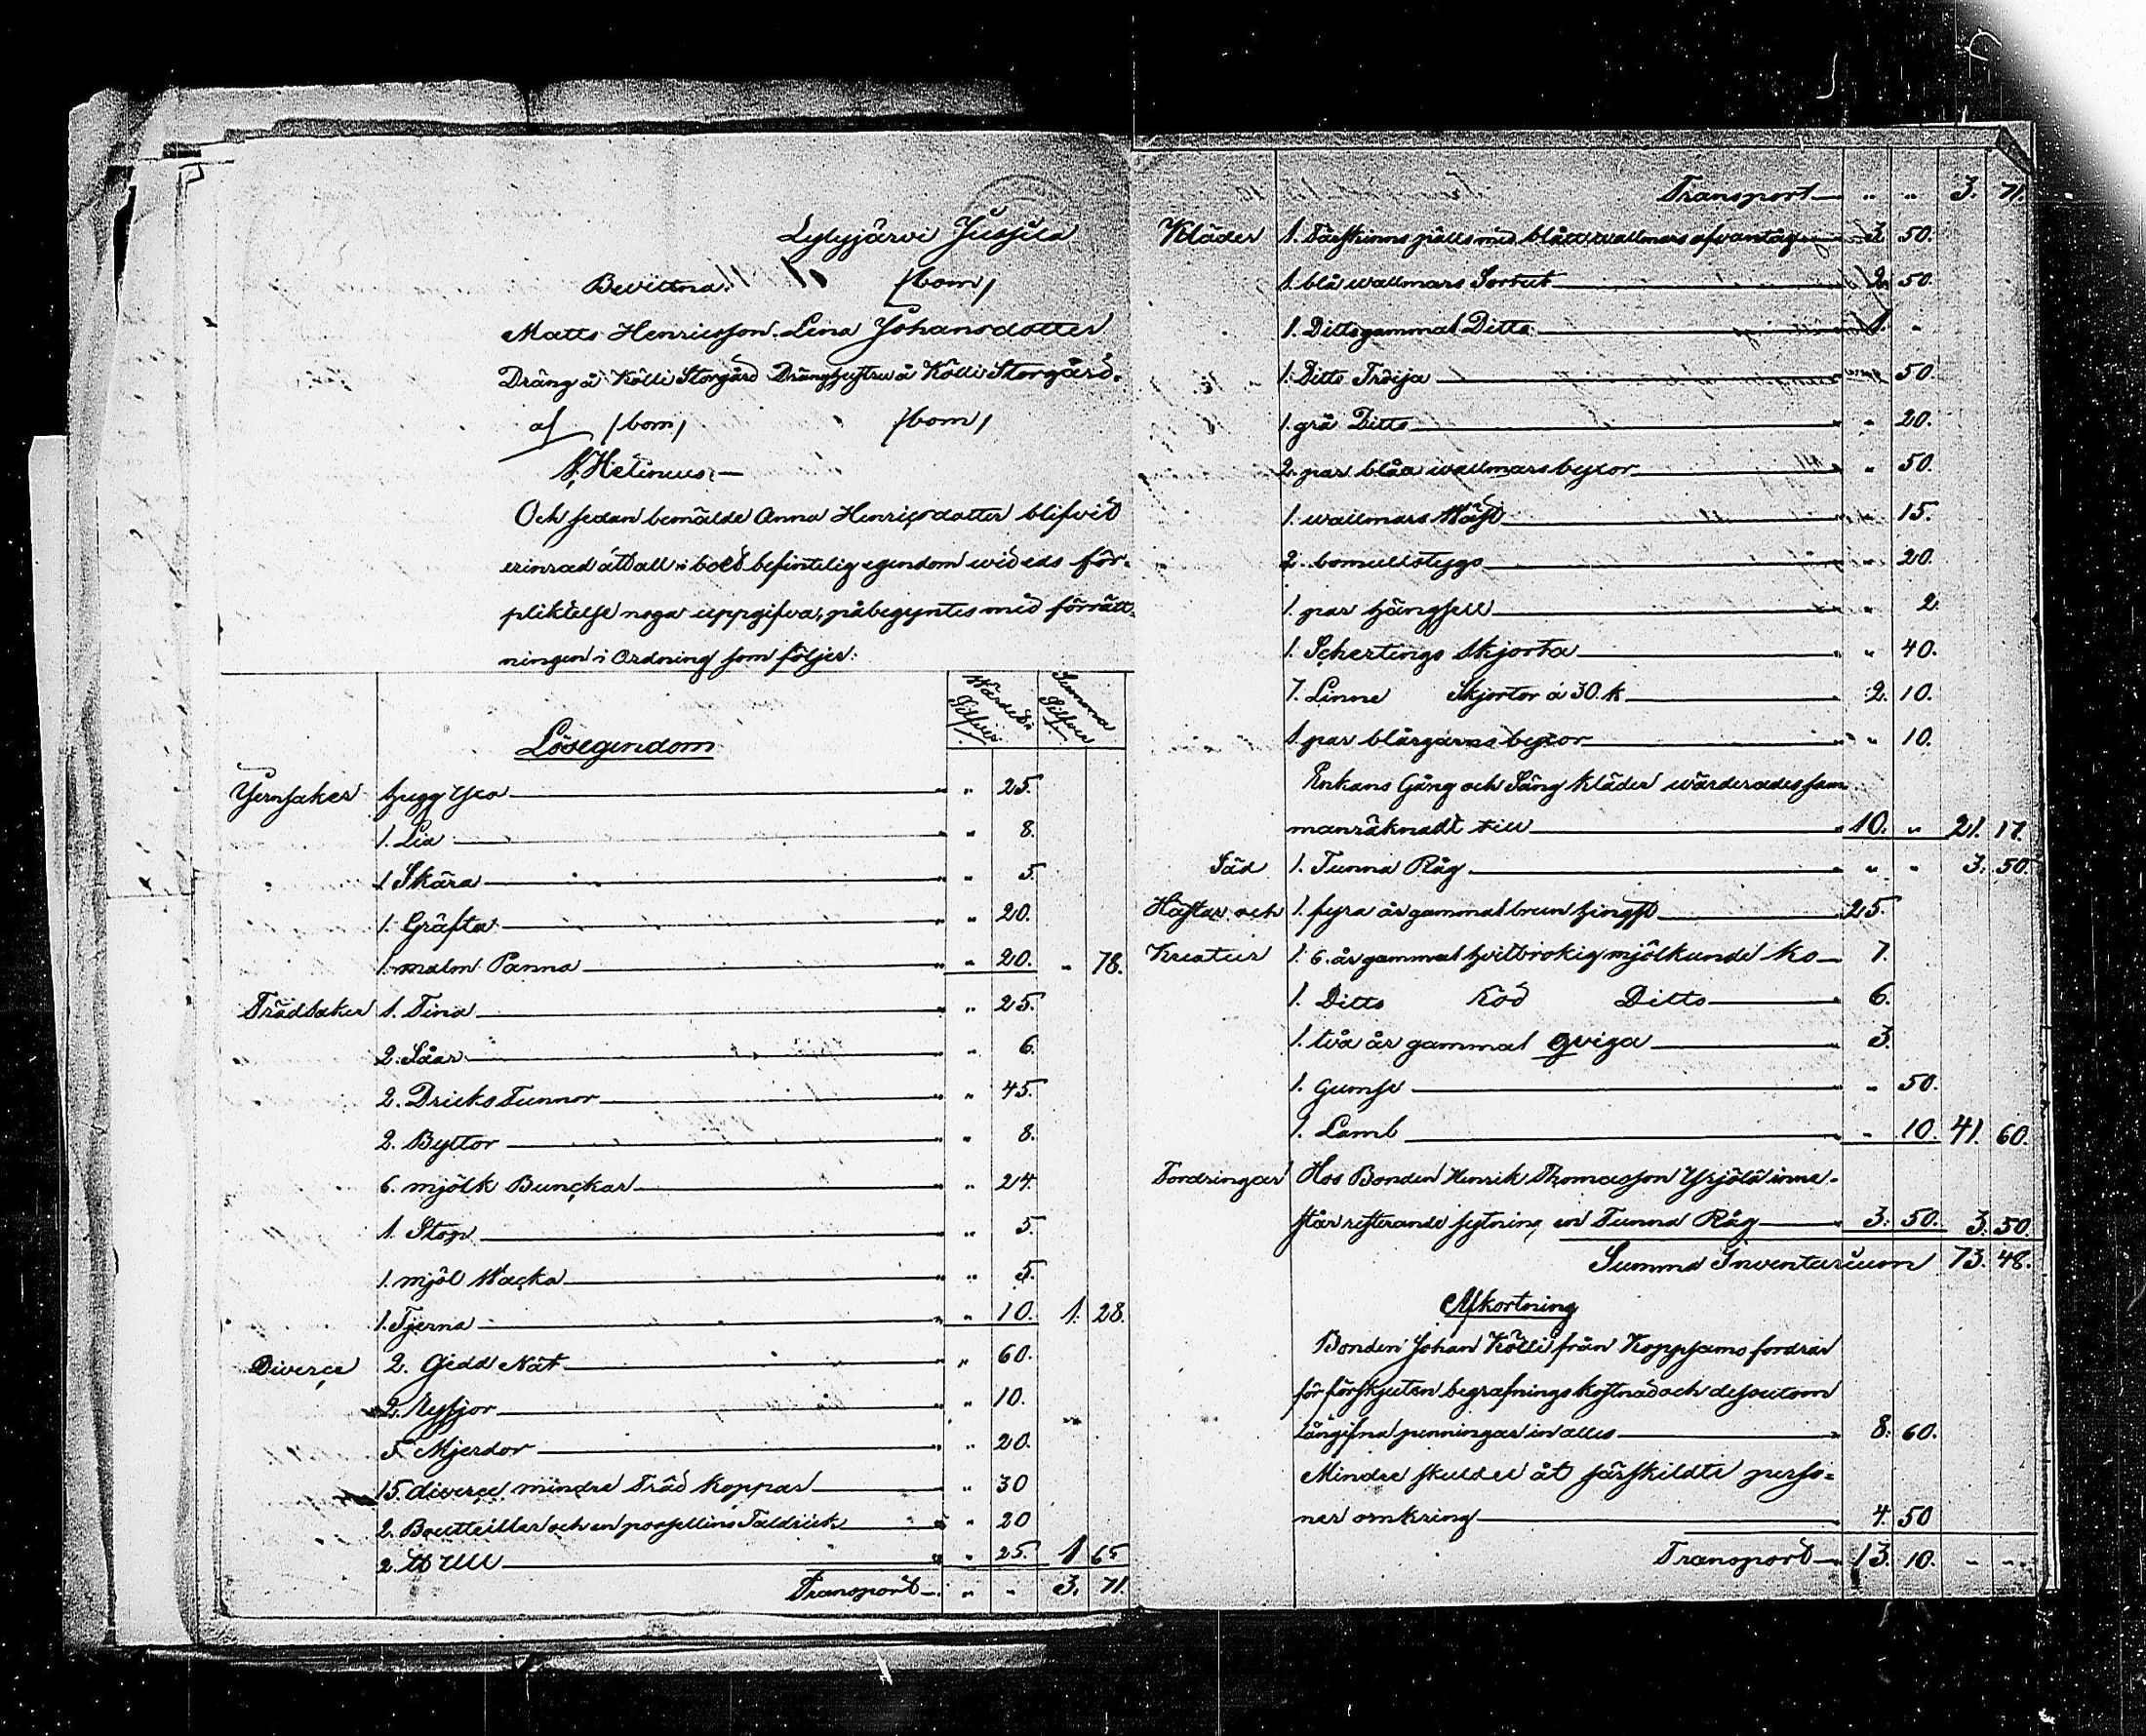 Lylyjärvi Jussila
Bevittna. (bom)
Matts Henricsson. Lena Johansdotter
Dräng å Kölli Storgård Dränghustru å Kölli Storgård.
af (bom) (bom)
Helinius.—
Och sedan bemälde Anna Henricsdotter blifvit
erinrad att all i boet befintelig egendom wid eds för-
pliktelse noga uppgifva, påbegyntes med förrätt-
ningen i Ordning som följer:
Wärde Silfver Summa Silfver
Lösegendom
Jernsaker hugg Yxa " 25.
1. Lia " 8.
1 Skära " 5.
1. Gräfta " 20.
1. malm Panna " 20. " 78.
Trädsaker 1. Tina " 25.
2. Såar " 6.
2. Dricks Tunnor " 45.
2. Byttor " 8.
6. mjölk Bunckar " 24.
1. Stop " 5.
1. mjöl Wacka " 5.
1. Tjerna " 10. 1. 28.
Diverse 2. Gedd Nät " 60.
2. Ryssjor " 10.
5. Mjerdor " 20.
15. diverse mindre Träd koppar " 30
2. Boutteiller och en porsellins Taldrick " 20
2. ℔ Ull " 25. 1 65
Transport " " 3. 71.
Transport " " 3. 71.
Kläder 1. Fårskinns pälls med blått wallmars 3 50.
1. blå wallmars Sortut 2. 50.
1. Ditto gammal Ditto 1. "
1. Ditto Tröija 50.
1. grå Ditto " 20.
2. par blåa wallmars byxor " 50.
1. wallmars Wäst " 15.
2. bomullstygs " 20.
1. par hängsell " 2.
1. Schertings Skjorta " 40.
7. Linne Skjortor á 30. k 2. 10.
1. par blårgarns byxor " 10.
Enkans Gång och Säng kläder wärderades sam
manräknadt till 10. " 21. 17.
Säd 1. Tunna Råg " " 3. 50.
Hästar och 1. fyra år gammal brun hingst 25.
Kreatur 1. 6. år gammal hvitbrokig mjölkande ko 7.
1. Ditto Röd Ditto 6.
1. två år gammal Qviga 3.
1. Gumse " 50.
1. Lamb " 10. 41. 60.
Fordringar Hos Bonden Henrik Thomasson Yrjölä inne-
står resterande sytning, en Tunna Råg 3. 50. 3. 50.
Summa Inventarium 73. 48.
Afkortning
Bonden Johan Kölli från Koppsamo fordrar
för förskjuten begrafnings kostnad och dessutom
långifna penningar in alles 8. 60.
Mindre skulder åt särskildte perso-
ner omkring 4. 50
Transport 13. 10. " "